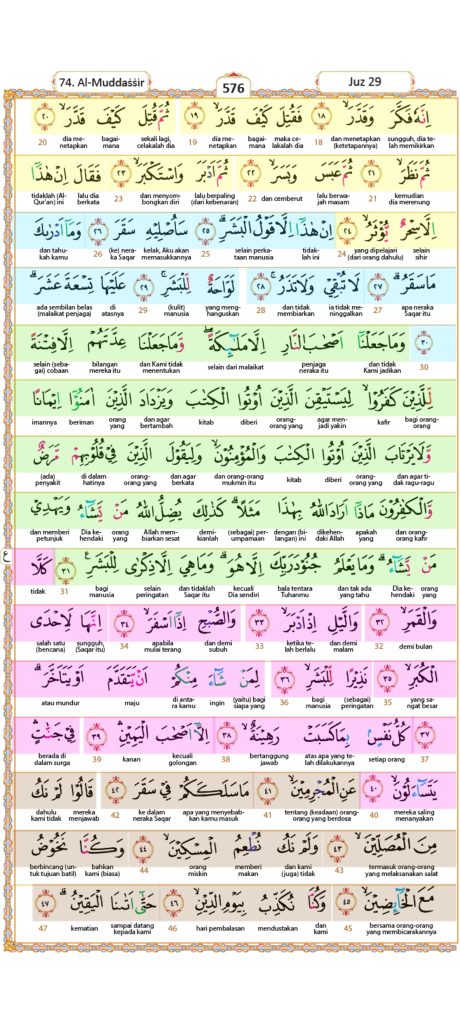 74. Al-Muddaṡṡir
576
Juz 29
اِنَّهٗ فَكَّرَ وَقَدَّرَۙ ١٨ فَقُتِلَ كَيْفَ قَدَّرَۙ ١٩ ثُمَّ قُتِلَ كَيْفَ قَدَّرَۙ ٢٠
sungguh, dia telah memikirkan dan menetapkan (ketetapannya) 18 maka celakalah dia bagaimana dia menetapkan 19 sekali lagi, celakalah dia bagaimana dia menetapkan 20
ثُمَّ نَظَرَۙ ٢١ ثُمَّ عَبَسَ وَبَسَرَۙ ٢٢ ثُمَّ اَدْبَرَ وَاسْتَكْبَرَۙ ٢٣ فَقَالَ اِنْ هٰذَآ
kemudian dia merenung 21 lalu berwajah masam dan cemberut 22 lalu berpaling (dari kebenaran) dan menyombongkan diri 23 lalu dia berkata tidaklah (Al-Qur'an) ini
اِلَّا سِحْرٌ يُّؤْثَرُۙ ٢٤ اِنْ هٰذَآ اِلَّا قَوْلُ الْبَشَرِۗ ٢٥ سَاُصْلِيْهِ سَقَرَ ٢٦ وَمَآ اَدْرٰىكَ
selain sihir yang dipelajari (dari orang dahulu) 24 tidaklah ini selain perkataan manusia 25 kelak, Aku akan memasukkannya (ke) neraka Saqar 26 dan tahukah kamu
مَا سَقَرُۗ ٢٧ لَا تُبْقِيْ وَلَا تَذَرُۚ ٢٨ لَوَّاحَةٌ لِّلْبَشَرِۚ ٢٩ عَلَيْهَا تِسْعَةَ عَشَرَۗ
apa neraka Saqar itu 27 ia tidak meninggalkan dan tidak membiarkan 28 yang menghanguskan (kulit) manusia 29 di atasnya ada sembilan belas (malaikat penjaga)
٣٠ وَمَا جَعَلْنَآ اَصْحٰبَ النَّارِ اِلَّا مَلٰۤىِٕكَةًۖ وَّمَا جَعَلْنَا عِدَّتَهُمْ اِلَّا فِتْنَةً
30 dan tidak Kami jadikan penjaga neraka itu selain dari malaikat dan Kami tidak menentukan bilangan mereka itu selain (sebagai) cobaan
لِّلَّذِيْنَ كَفَرُوْاۙ لِيَسْتَيْقِنَ الَّذِيْنَ اُوْتُوا الْكِتٰبَ وَيَزْدَادَ الَّذِيْنَ اٰمَنُوْٓا اِيْمَانًا
bagi orang-orang kafir agar menjadi yakin orang-orang yang diberi kitab dan agar bertambah orang yang beriman imannya
وَّلَا يَرْتَابَ الَّذِيْنَ اُوْتُوا الْكِتٰبَ وَالْمُؤْمِنُوْنَۙ وَلِيَقُوْلَ الَّذِيْنَ فِيْ قُلُوْبِهِمْ مَّرَضٌ
dan agar tidak ragu-ragu orang-orang yang diberi kitab dan orang-orang mukmin dan agar berkata orang-orang yang di dalam hatinya (ada) penyakit
وَّالْكٰفِرُوْنَ مَاذَآ اَرَادَ اللّٰهُ بِهٰذَا مَثَلًاۗ كَذٰلِكَ يُضِلُّ اللّٰهُ مَنْ يَّشَاۤءُ وَيَهْدِيْ
dan orang-orang kafir apakah yang dikehendaki Allah dengan (bilangan) ini (sebagai) perumpamaan demikianlah Allah membiarkan sesat orang yang Dia kehendaki dan memberi petunjuk
مَنْ يَّشَاۤءُۗ وَمَا يَعْلَمُ جُنُوْدَ رَبِّكَ اِلَّا هُوَۗ وَمَا هِيَ اِلَّا ذِكْرٰى لِلْبَشَرِ ٣١ كَلَّا
orang yang Dia kehendaki dan tak ada yang tahu bala tentara Tuhanmu kecuali Dia sendiri dan tidaklah Saqar itu selain peringatan bagi manusia 31 tidak
ع
وَالْقَمَرِۙ ٣٢ وَالَّيْلِ اِذْ اَدْبَرَۙ ٣٣ وَالصُّبْحِ اِذَآ اَسْفَرَۙ ٣٤ اِنَّهَا لَاِحْدَى
demi bulan 32 dan demi malam ketika telah berlalu 33 dan demi subuh apabila mulai terang 34 sungguh, (Saqar itu) salah satu (bencana)
الْكُبَرِۙ ٣٥ نَذِيْرًا لِّلْبَشَرِۙ ٣٦ لِمَنْ شَاۤءَ مِنْكُمْ اَنْ يَّتَقَدَّمَ اَوْ يَتَاَخَّرَۗ
yang sangat besar 35 (sebagai) peringatan bagi manusia 36 (yaitu) bagi siapa yang ingin di antara kamu maju atau mundur
٣٧ كُلُّ نَفْسٍۢ بِمَا كَسَبَتْ رَهِيْنَةٌۙ ٣٨ اِلَّآ اَصْحٰبَ الْيَمِيْنِۛ ٣٩ فِيْ جَنّٰتٍۛ
37 setiap orang atas apa yang telah dilakukannya bertanggung jawab 38 kecuali golongan kanan 39 berada di dalam surga
يَتَسَاۤءَلُوْنَۙ ٤٠ عَنِ الْمُجْرِمِيْنَۙ ٤١ مَا سَلَكَكُمْ فِيْ سَقَرَ ٤٢ قَالُوْا لَمْ نَكُ
mereka saling menanyakan 40 tentang (keadaan) orang-orang yang berdosa 41 apa yang menyebabkan kamu masuk ke dalam neraka Saqar 42 mereka menjawab dahulu kami tidak
مِنَ الْمُصَلِّيْنَۙ ٤٣ وَلَمْ نَكُ نُطْعِمُ الْمِسْكِيْنَۙ ٤٤ وَكُنَّا نَخُوْضُ
termasuk orang-orang yang melaksanakan salat 43 dan kami (juga) tidak memberi makan orang miskin 44 bahkan kami (biasa) berbincang (untuk tujuan batil)
مَعَ الْخَاۤىِٕضِيْنَۙ ٤٥ وَكُنَّا نُكَذِّبُ بِيَوْمِ الدِّيْنِۙ ٤٦ حَتّٰىٓ اَتٰىنَا الْيَقِيْنُۗ ٤٧
bersama orang-orang yang membicarakannya 45 dan kami mendustakan hari pembalasan 46 sampai datang kepada kami kematian 47